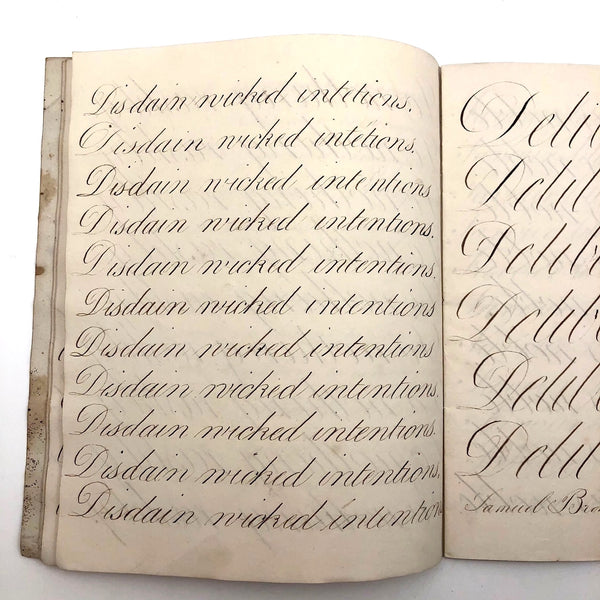 Disdain wicked intetions.
Disdain wicked intetions.
Disdain wicked intentions
Disdain wicked intentions.
Disdain wicked intentions.
Disdain wicked intentions
Disdain wicked intentions
Disdain wicked intentions.
Disdain wicked intentions.
Disdain wicked intentions.
Disdain wicked intentions
Samuel